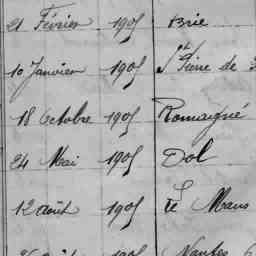 21 Février 1905 Brie
10 Janvier 1905 St Père de
18 Octobre 1905 Romagné
24 Mai 1905 Dol
12 août 1905 Le Mans
1905 Nantes